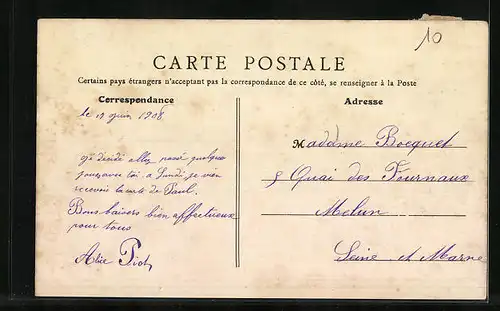 10
CARTE POSTALE
Certains pays étrangers n'acceptant pas la correspondance de ce côté, se renseigner à la Poste
Correspondance
Adresse
le 19 juin 1908
décidé passé quelque
jours avec toi. a Lundi je vien
recevoir la carte de Paul.
Bons baisers bien affectueux
pour tous
Alice Piot
Madame Bocquet
5 Quai des Fournaux
Melun
Seine et Marne